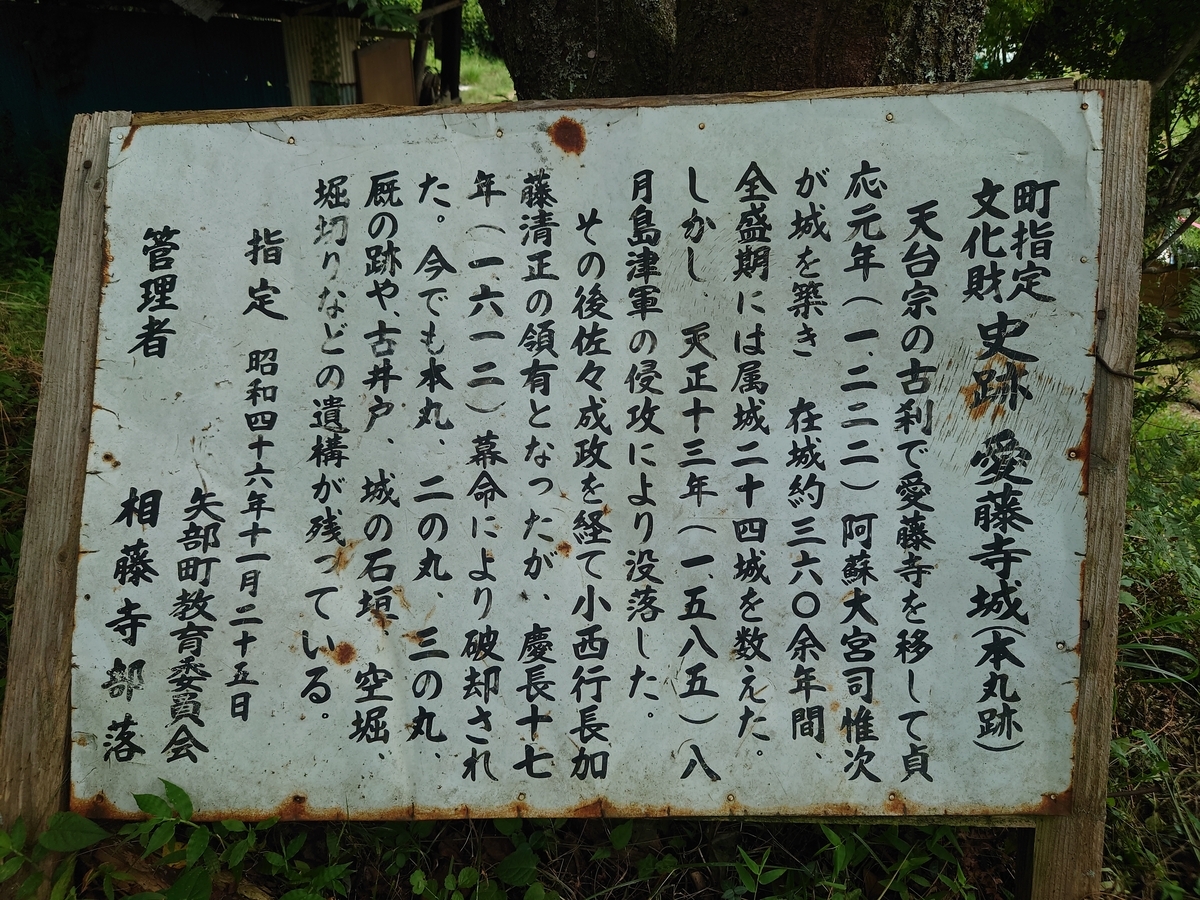 町指定
文化財 史跡 愛藤寺城(本丸跡)
天台宗の古刹で愛藤寺を移して貞
応元年(一、二二二)阿蘇大宮司惟次
が城を築き 在城約三六〇余年間、
全盛期には属城二十四城を数えた。
しかし、天正十三年(一、五八五)八
月島津軍の侵攻により没落した。
その後佐々成政を経て小西行長加
藤清正の領有となったが、慶長十七
年(一六一二)幕命により破却され
た。今でも本丸、二の丸、三の丸、
厩の跡や、古井戸、城の石垣、空堀、
堀切りなどの遺構が残っている。
指定 昭和四十六年十一月二十五日
管理者 矢部町教育委員会
相藤寺部落